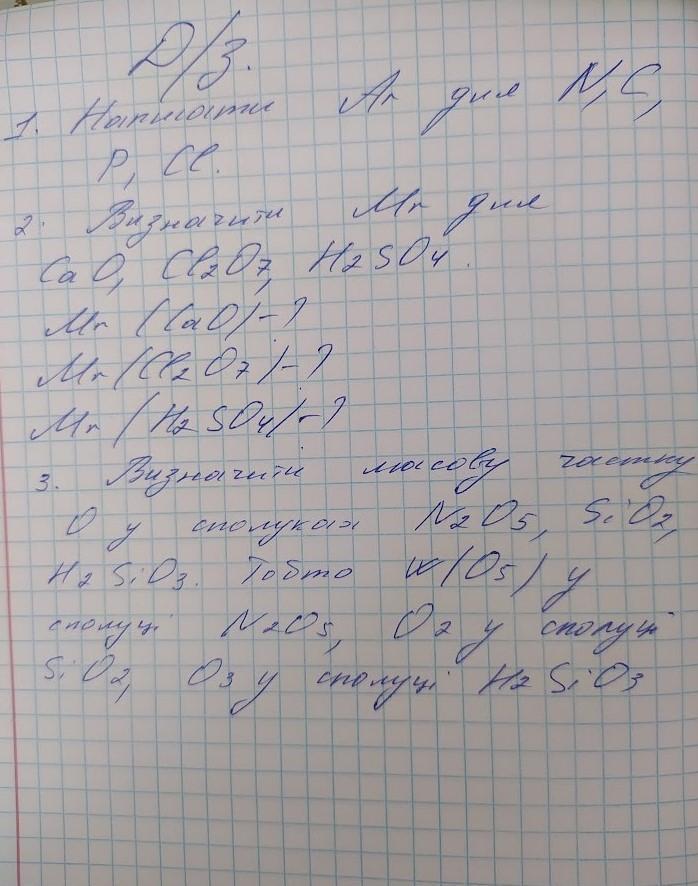 Д/з.
1. Написати Ar для N, C,
P, Cl.
2. Визначити Mr для
CaO, Cl2O7, H2SO4.
Mr (CaO)-?
Mr (Cl2O7)-?
Mr (H2SO4)-?
3. Визначити масову частку
O у сполуках N2O5, SiO2,
H2SiO3. Тобто W(O5) у
сполуці N2O5, O2 у сполуці
SiO2, O3 у сполуці H2SiO3